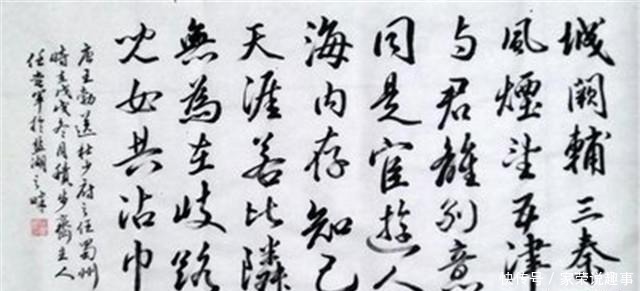 城闕輔三秦
風煙望五津
与君離别意
同是宦遊人
海内存知己
天涯若比隣
無為在岐路
兒女共沾巾
唐王勃送杜少府之任蜀州
時戊戌冬月積步齋主人
任軍於盐湖之畔
快传号 / 家荣说趣事